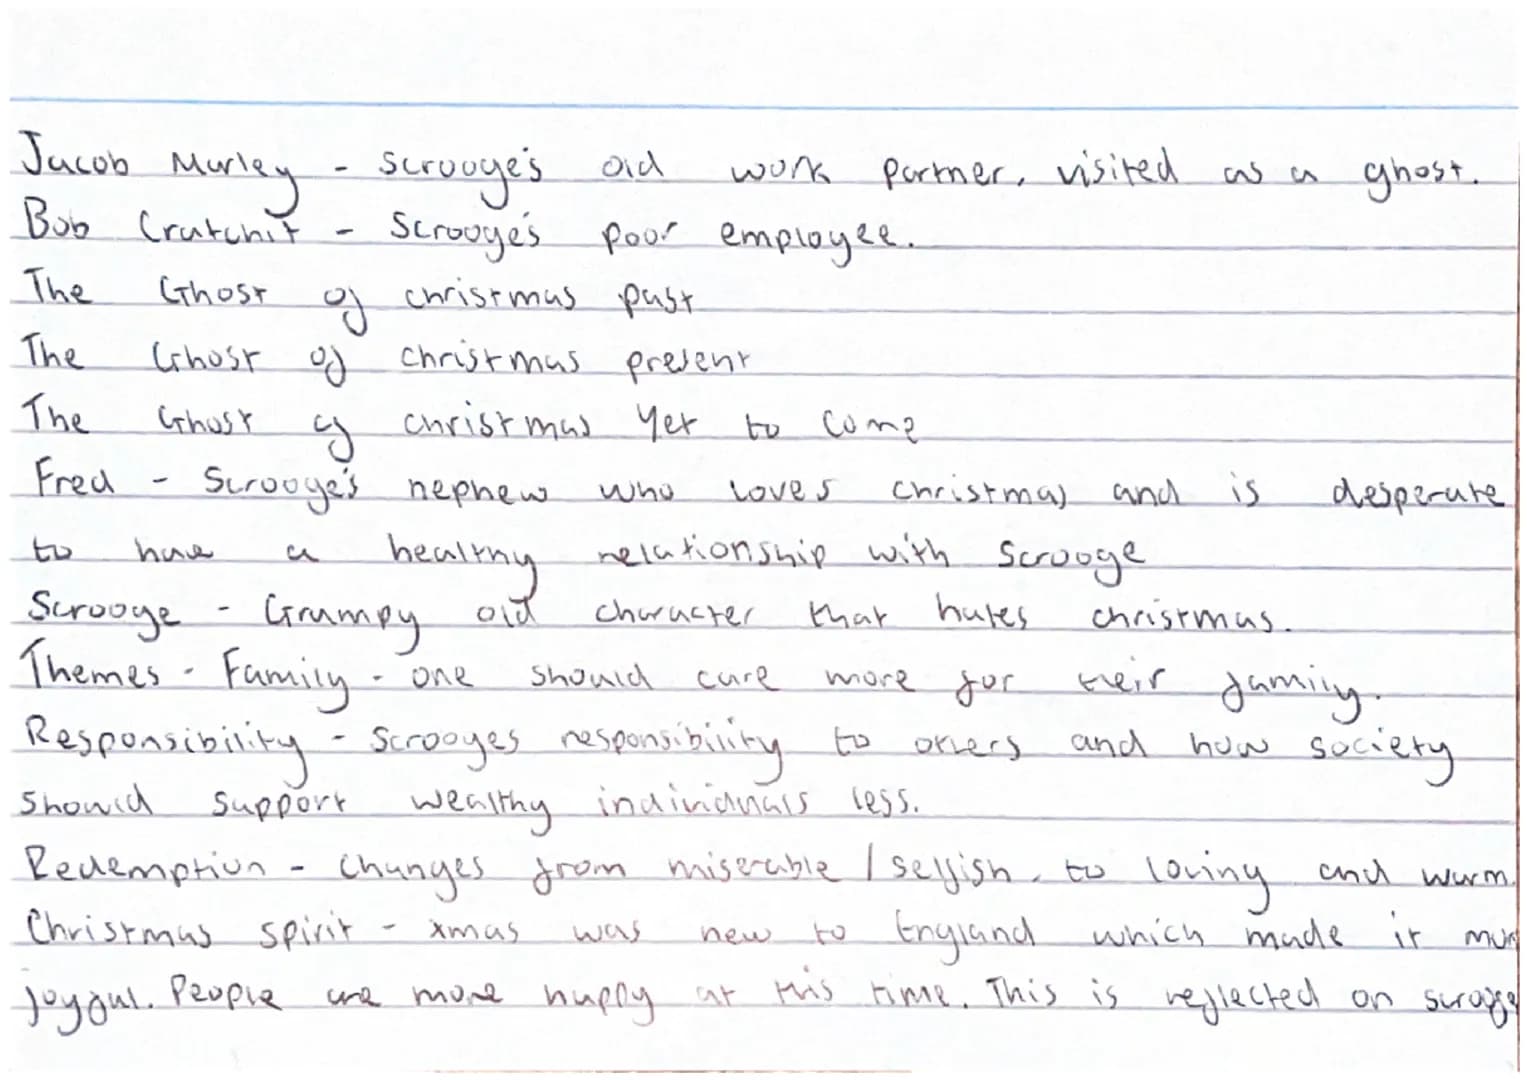 Jacob Marley - Scrooge's old work partner, visited as a ghost.
Bob Cratchit - Scrooge's poor employee.
The Ghost of christmas past
The Ghost of christmas present
The Ghost of christmas Yet to Come
Fred - Scrooge's nephew who loves christmas and is desperate
to have a healthy relationship with Scrooge
Scrooge - Grumpy old character that hates christmas.
Themes - Family - one should care more for their family.
Responsibility - Scrooges responsibility to others and how society
should support wealthy individuals less.
Redemption - Changes from miserable / selfish, to loving and warm.
Christmas spirit - xmas was new to England which made it more
joyful. People are more happy at this time. This is reflected on scrooge